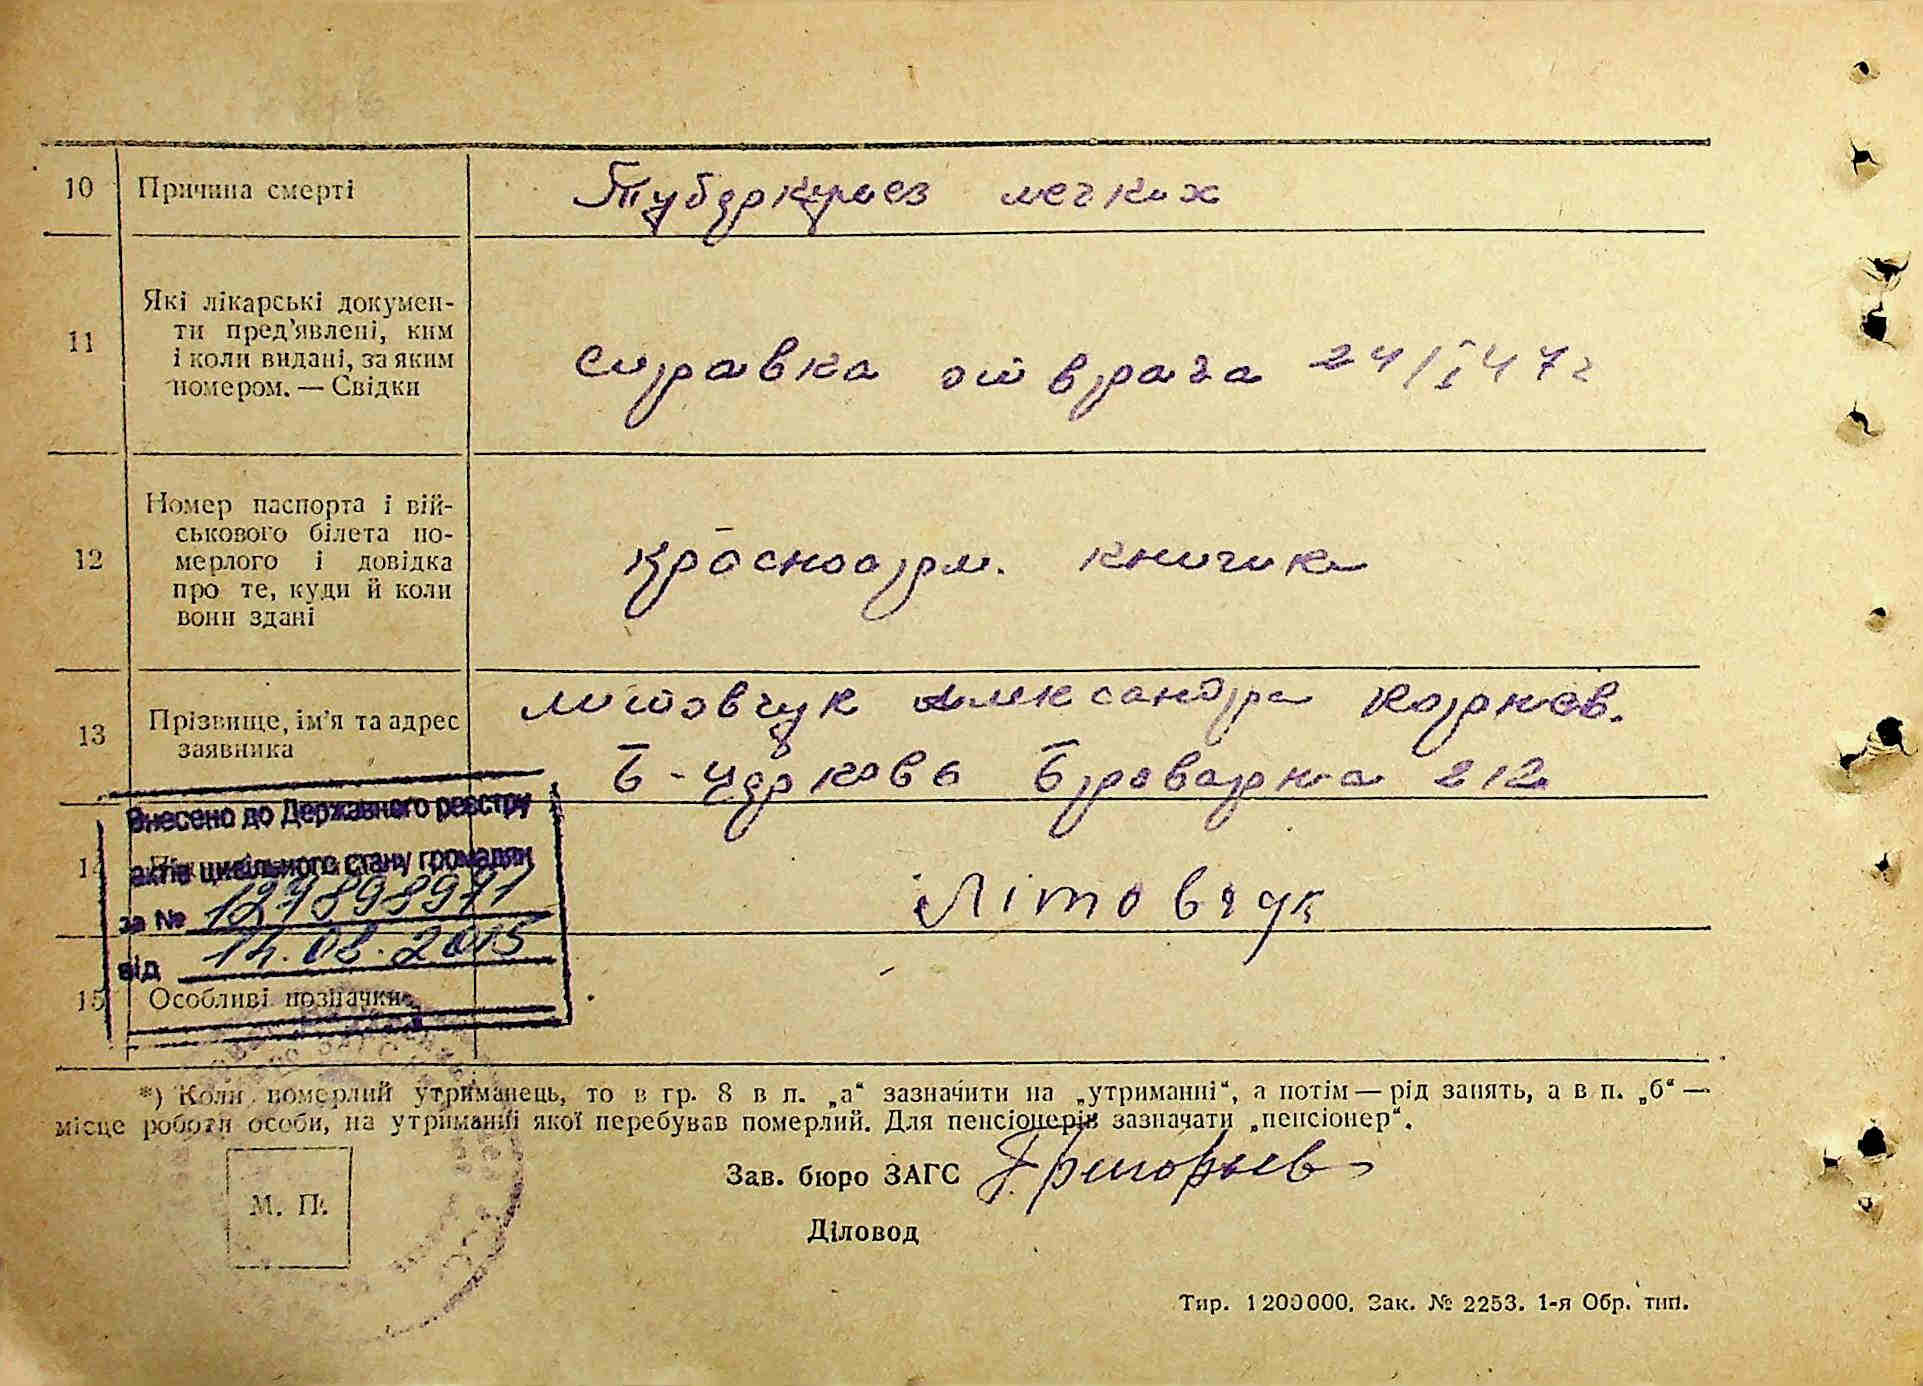 10 Причина смерті Туберкулез легких
11 Які лікарські докумен-
ти пред’явлені, ким
і коли видані, за яким
номером. — Свідки
справка от врача 24/I 47г
12 Номер паспорта і вій-
ськового білета по-
мерлого і довідка
про те, куди й коли
вони здані
красноарм. книжка
13 Прізвище, ім’я та адрес
заявника
Литовчук Александра Корнев.
Б-Церковь Броварна 212
Внесено до Державного реєстру
актів цивільного стану громадян
за № 127898971
від 14.08.2015
14
Літовчук
15 Особливі позначки
*) Коли померлий утриманець, то в гр. 8 в п. „а“ зазначити на „утриманні“, а потім — рід занять, а в п. „б“ —
місце роботи особи, на утриманні якої перебував померлий. Для пенсіонерів зазначати „пенсіонер“.
М. П.
Зав. бюро ЗАГС Григорьев
Діловод
Тир. 1200000. Зак. № 2253. 1-я Обр. тип.